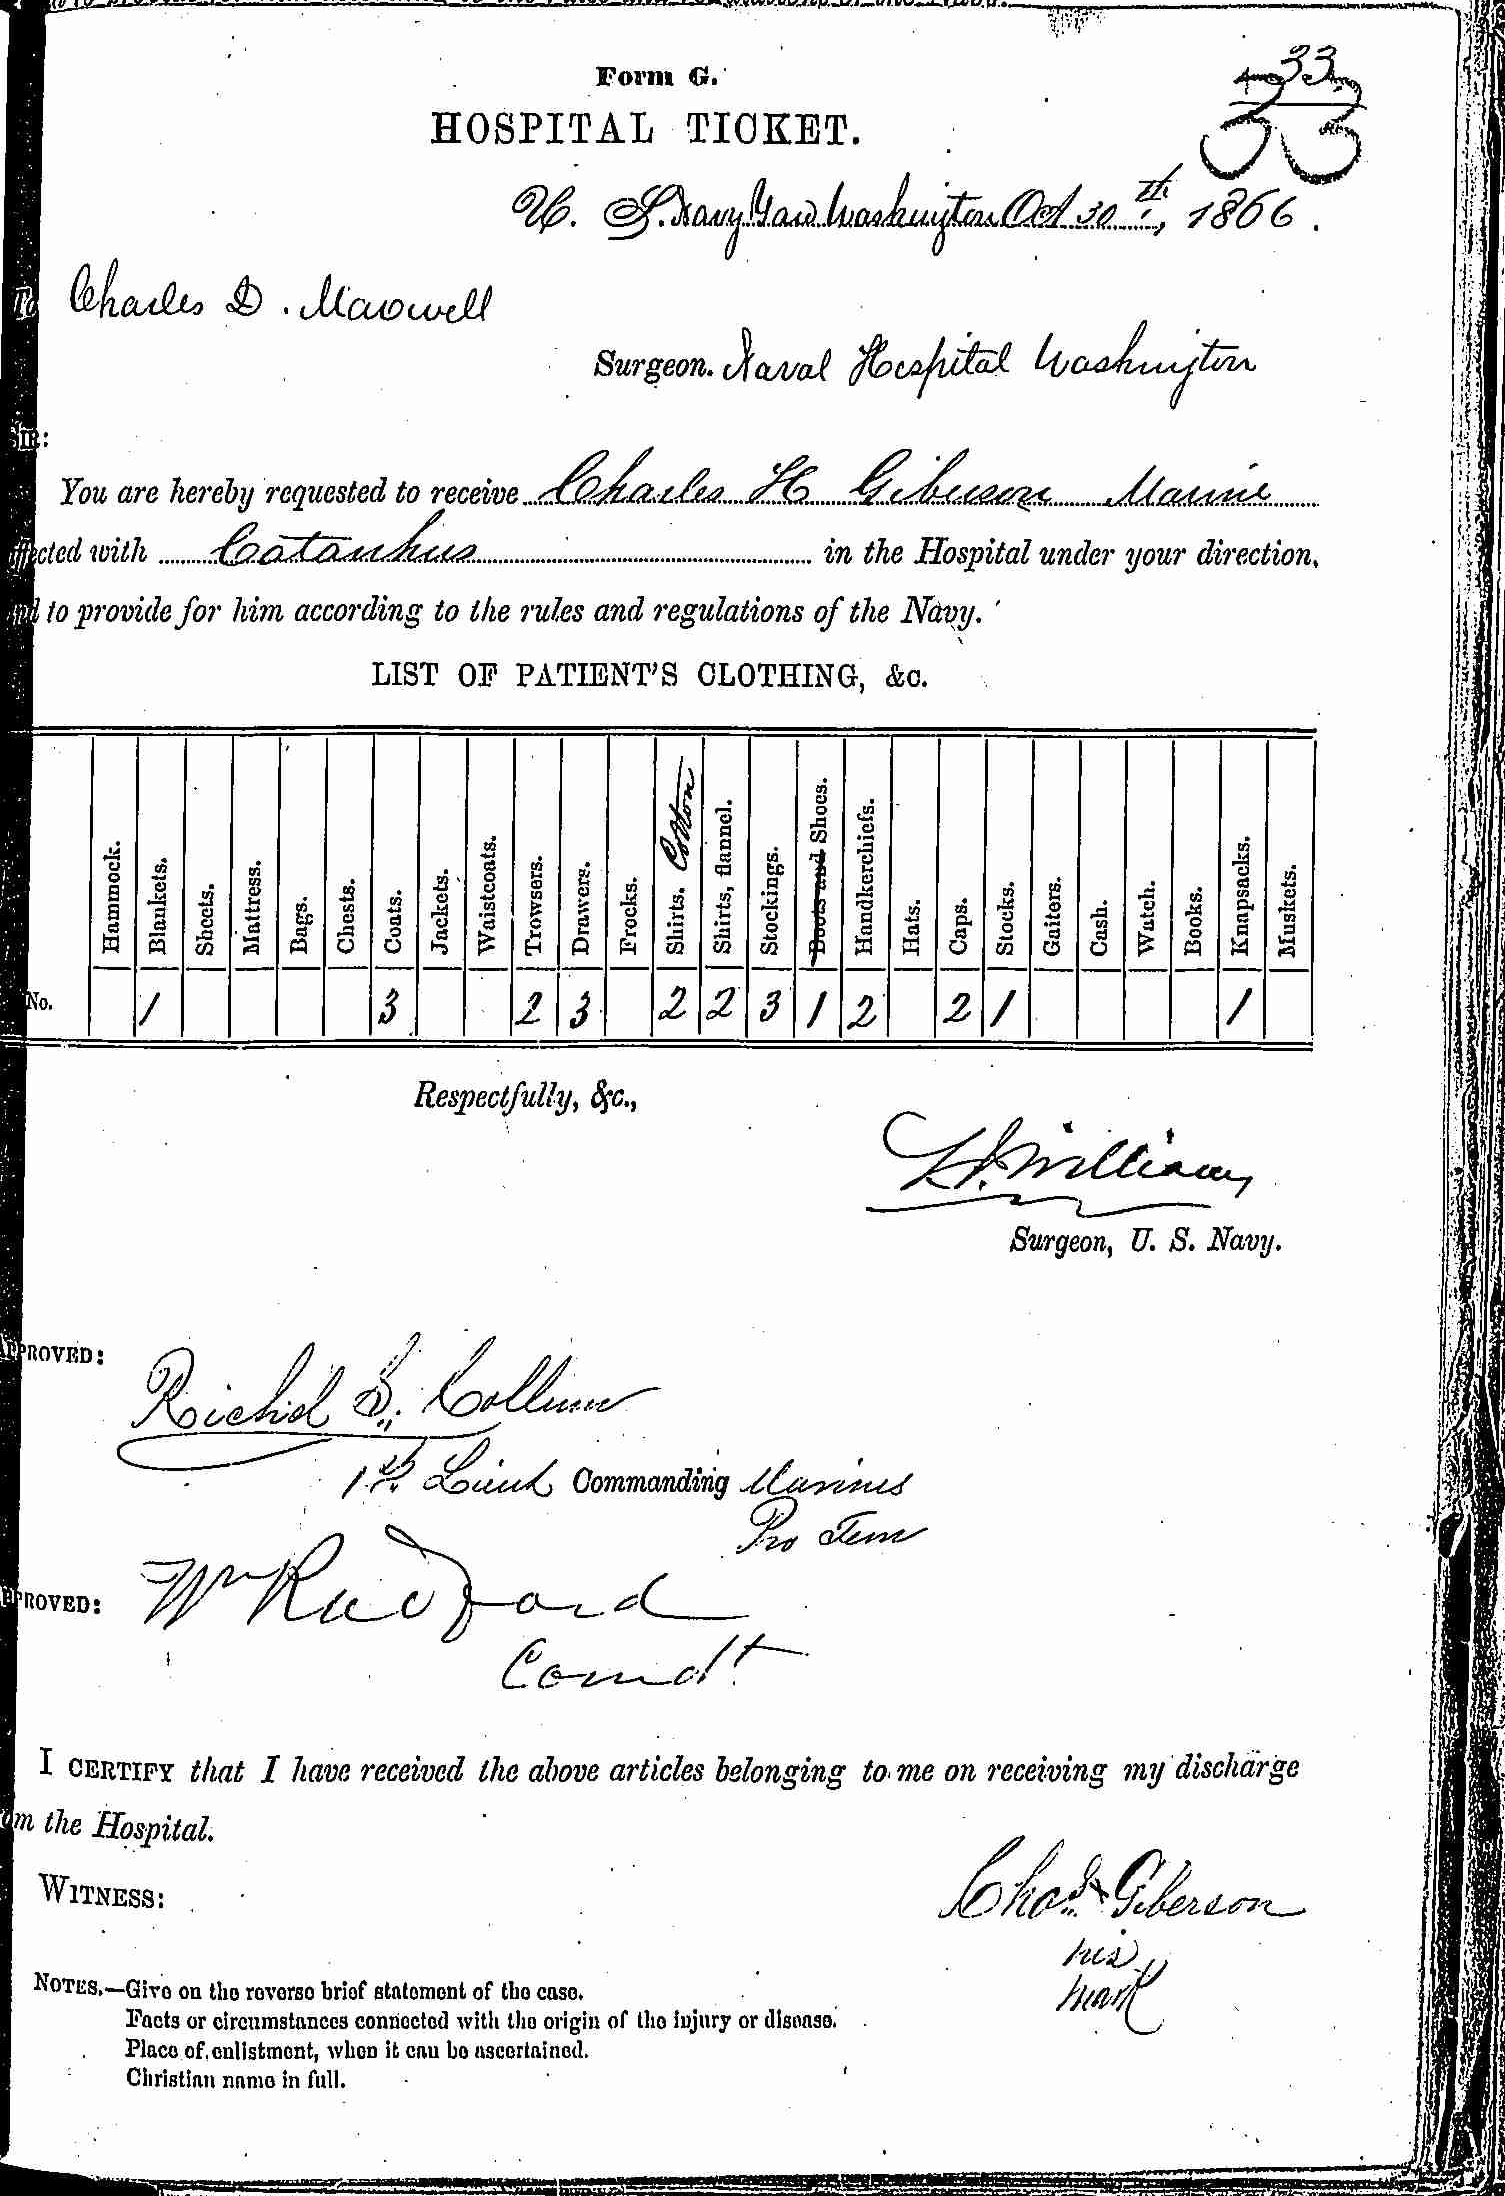 Form G.
33
33
HOSPITAL TICKET.
U. S. Navy Yard Washington Oct 30th, 1866.
To Charles D. Maxwell
Surgeon. Naval Hospital Washington
SIR:
You are hereby requested to receive Charles H Giberson Marine
ffected with Catarrhus in the Hospital under your direction,
and to provide for him according to the rules and regulations of the Navy.
LIST OF PATIENT'S CLOTHING, &c.
Hammock. Blankets. Sheets. Mattress. Bags. Chests. Coats. Jackets. Waistcoats. Trowsers. Drawers. Frocks. Shirts. Cotton Shirts, flannel. Stockings. Boots and Shoes. Handkerchiefs. Hats. Caps. Stocks. Gaiters. Cash. Watch. Books. Knapsacks. Muskets.
No. 1 3 2 3 2 2 3 1 2 2 1 1
Respectfully, &c.,
Williams
Surgeon, U. S. Navy.
APPROVED:
Richd S. Collum
1st. Lieut Commanding Marines
Pro Tem
APPROVED:
Wm Radford
Comdt.
I CERTIFY that I have received the above articles belonging to me on receiving my discharge
om the Hospital.
WITNESS:
Chas. x Giberson
his
mark
NOTES.—Give on the reverse brief statement of the case.
Facts or circumstances connected with the origin of the injury or disease.
Place of enlistment, when it can be ascertained.
Christian name in full.